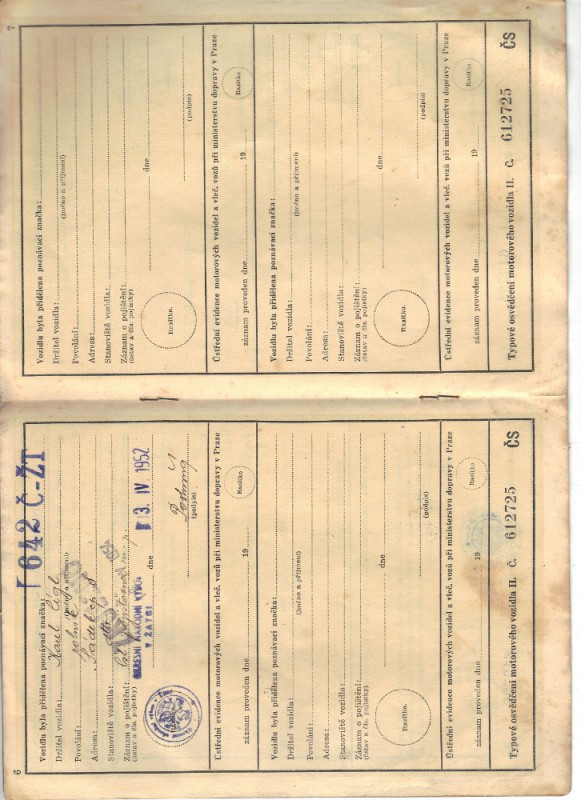 6
Vozidlu byla přidělena poznávací značka: 642 Č-ŽT
Držitel vozidla: Karel
(jméno a příjmení)
Povolání: rolník
Adresa:
Stanoviště vozidla:
Záznam o pojištění:
(ústav a čís. pojistky)
OKRESNÍ NÁRODNÍ VÝBOR
V ŽATCI
dne 3. IV. 1952
Razítko.
(podpis)
Ústřední evidence motorových vozidel a vleč. vozů při ministerstvu dopravy v Praze
záznam proveden dne 19
Razítko
Vozidlu byla přidělena poznávací značka:
Držitel vozidla:
(jméno a příjmení)
Povolání:
Adresa:
Stanoviště vozidla:
Záznam o pojištění:
(ústav a čís. pojistky)
dne
Razítko.
(podpis)
Ústřední evidence motorových vozidel a vleč. vozů při ministerstvu dopravy v Praze
záznam proveden dne 19
Razítko
Typové osvědčení motorového vozidla II. č. 612725 ČS
7
Vozidlu byla přidělena poznávací značka:
Držitel vozidla:
(jméno a příjmení)
Povolání:
Adresa:
Stanoviště vozidla:
Záznam o pojištění:
(ústav a čís. pojistky)
dne
Razítko.
(podpis)
Ústřední evidence motorových vozidel a vleč. vozů při ministerstvu dopravy v Praze
záznam proveden dne 19
Razítko
Vozidlu byla přidělena poznávací značka:
Držitel vozidla:
(jméno a příjmení)
Povolání:
Adresa:
Stanoviště vozidla:
Záznam o pojištění:
(ústav a čís. pojistky)
dne
Razítko.
(podpis)
Ústřední evidence motorových vozidel a vleč. vozů při ministerstvu dopravy v Praze
záznam proveden dne 19
Razítko
Typové osvědčení motorového vozidla II. č. 612725 ČS